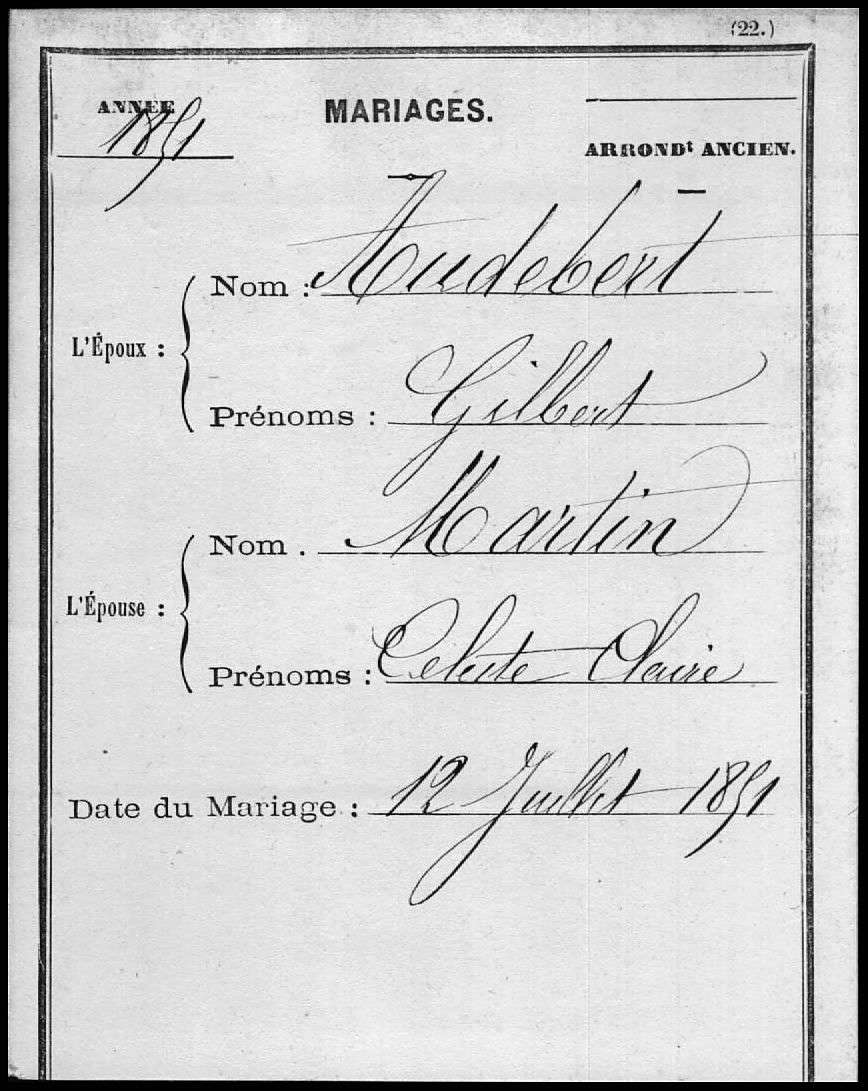 (22.)
ANNÉE MARIAGES.
1851
ARRONDt ANCIEN.
L'Époux :
Nom : Audebert
Prénoms : Gilbert
L'Épouse :
Nom . Martin
Prénoms : Celeste Claire
Date du Mariage : 12 Juillet 1851